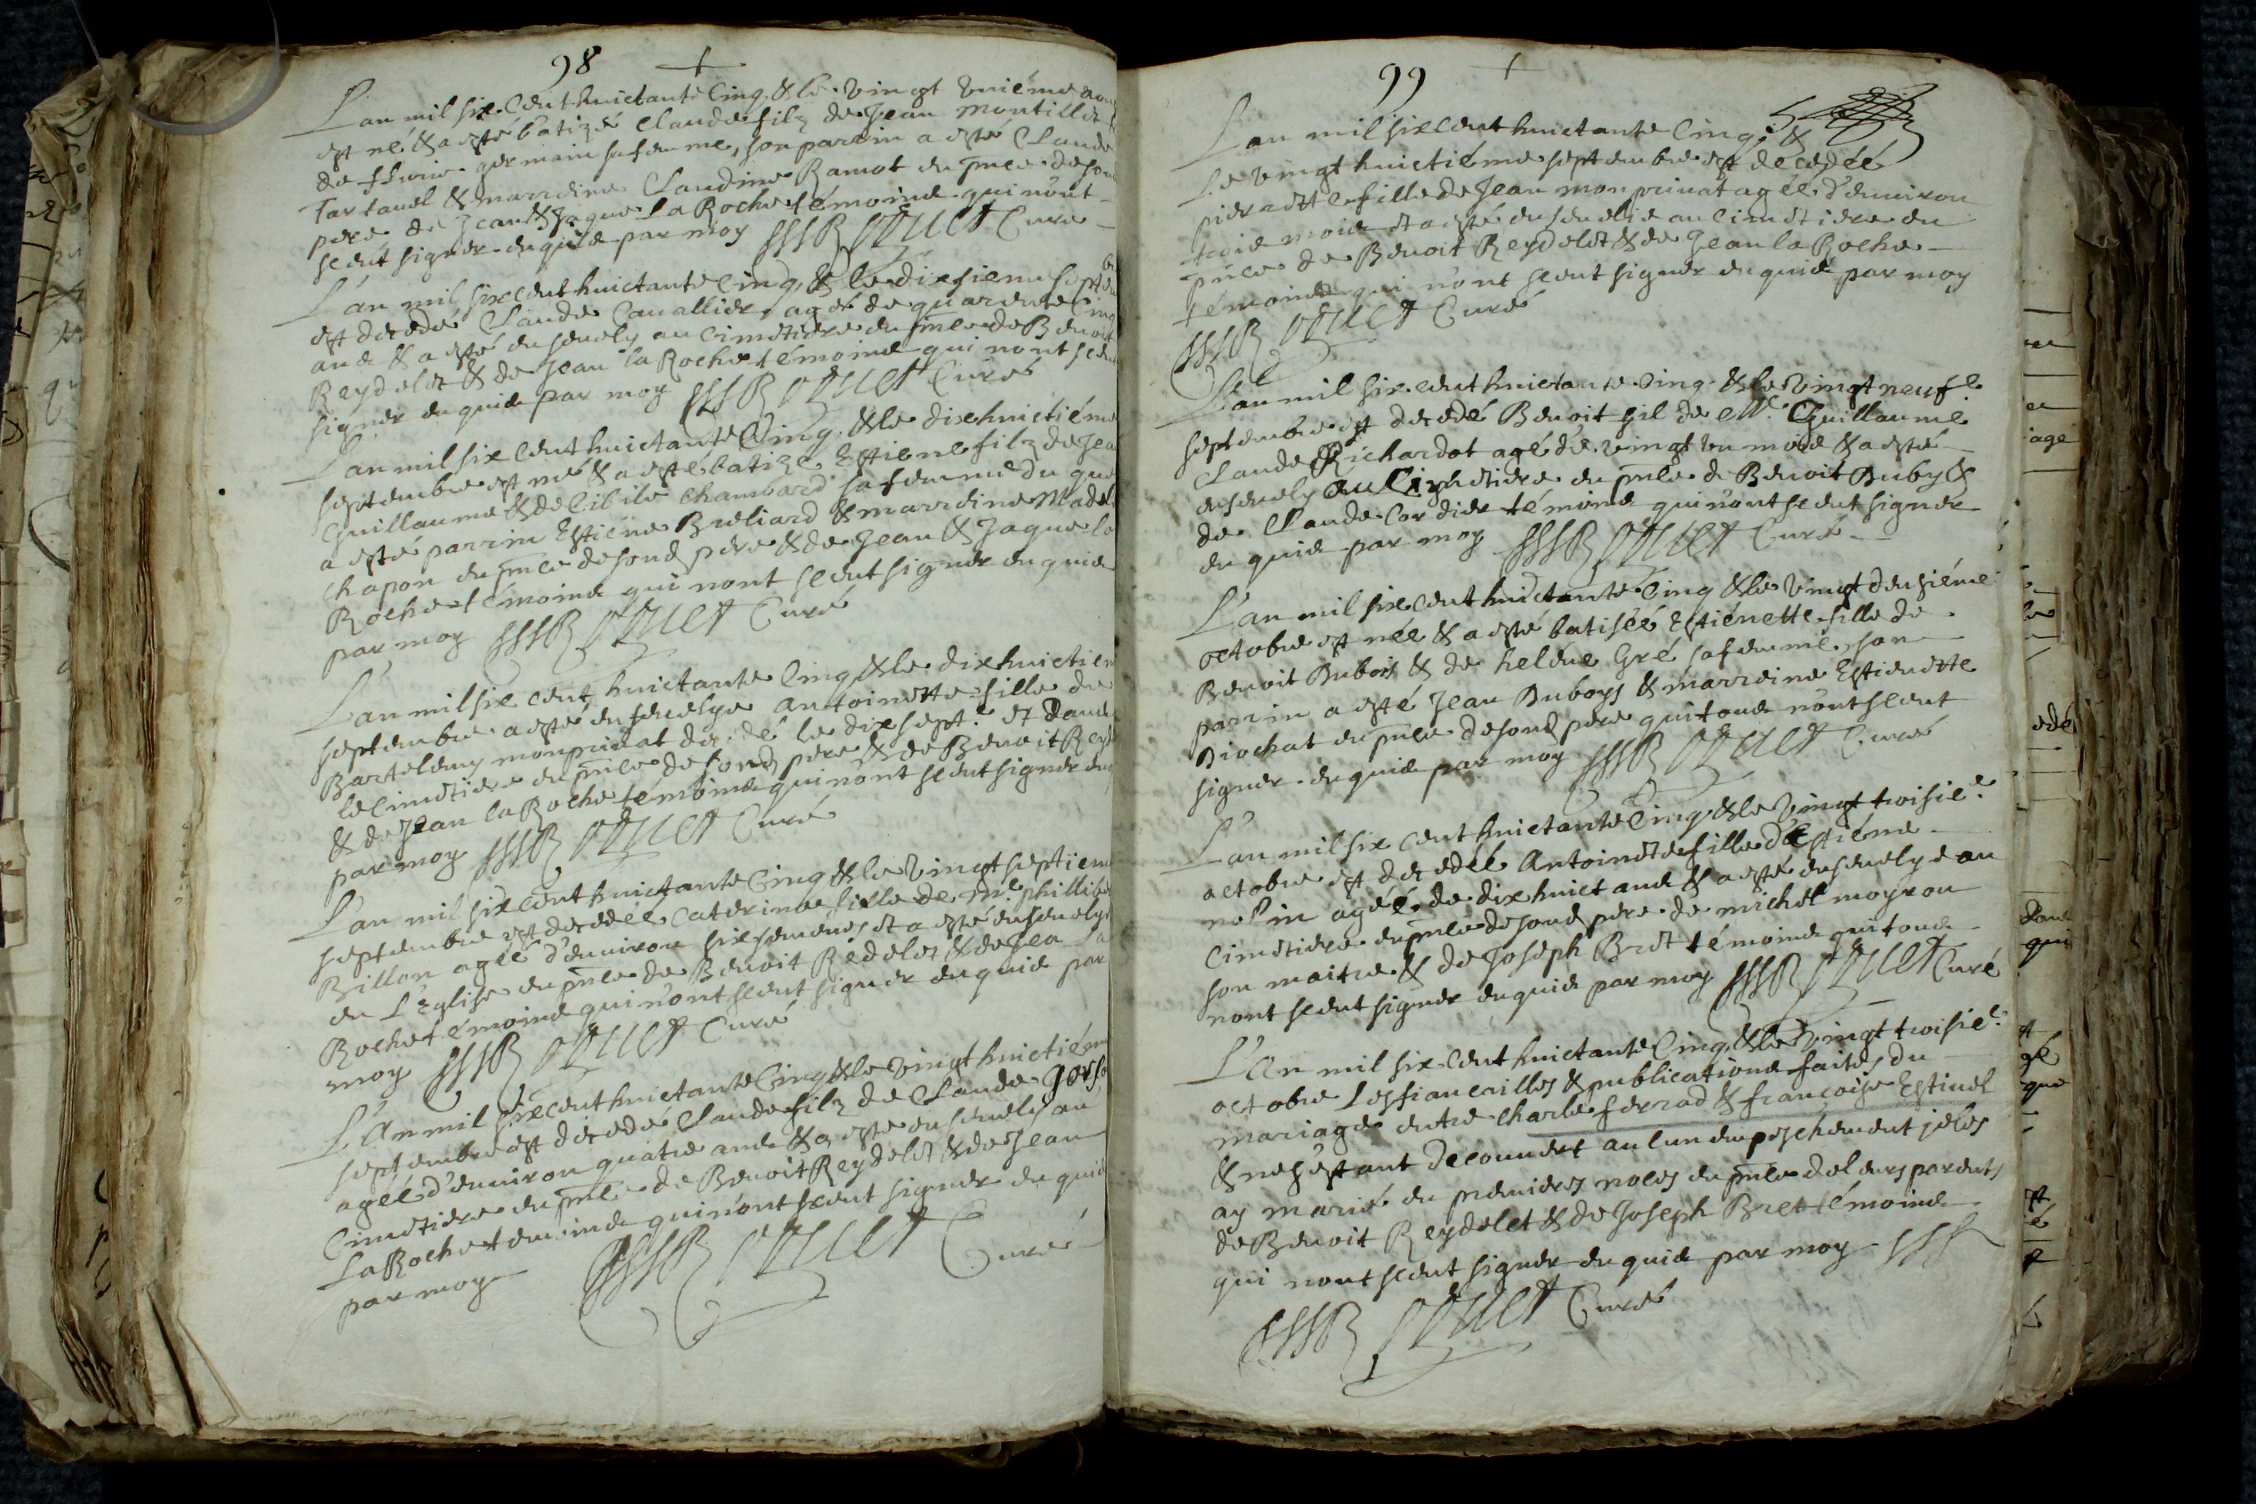 98
L'an mil six cent huictante cinq & le vingt uniéme aou
est né & a esté batizé claude filz de Jean montillet
de germain sa femme, son parrin a esté Claude
Tartavel & marreine Claudine Ramot en pnce de son
pere de Jean & Jaque la Roche témoins qui n'ont
sceut signer enquis par moy Curé
L'an mil six cent huictante cinq & le dixsieme septem
est decedé Claude Cavallier, agé de quarente cinq
ans & a esté ensevely au cimetiere en pnce de Benoit
Reydelet & de Jean la Roche témoins qui n'ont sceu
signer enquis par moy Curé
L'an mil six cent huictante Cinq, & le dixhuictiéme
septembre est né & a esté batizé Estiene filz de Jea
Guillaume & de Cibile Chambard sa femme du que
a esté parrin Estiene Breliard & marreine Madel
Chapon en pnce de sond pere & de Jean & Jaque la
Roche témoins qui nont sceut signer enquis
par moy Curé
L'an mil six cent huictante Cinq & le dixhuictiem
septembre a esté ensevelye antoinette fille de
Bartelemy monprivat decedé le dixsept.e et dans
le cimetiere en pnce de sond pere & de Benoit Reyd
& de Jean la Roche témoins qui n'ont sceut signer enq
par moy Curé
L'an mil six cent huictante Cinq & le vingt septiem
septembre est decedée Caterine fille de Mr. phillibe
Billon agée d'environ six semenes et a esté ensevelye
en L'Eglise en pnce de Benoit Redelet & de Jea La
Roche témoins qui n'ont sceut signer enquis par
moy Curé
L'An mil six cent huictante Cinq & le vingt huictiém
septembre est decedé Claude filz de Claude
agéé d'environ quatre ans & a esté ensevely au
Cimetiere en pnce de Benoit Reydelet & de Jean
La Roche temoins qui n'ont sceut signer enquis
par moy Curé
99
L'an mil six cent huictante Cinq, &
Le vingt huictiéme septembre est decedéé
pierrette fille de Jean monprivat agée d'environ
trois mois et a esté ensevelie au cimetiere en
pnce de Benoit Reydelet & de Jean la Roche
témoins qui n'ont sceut signer enquis par moy
Curé
L'an mil six cent huictante Cinq & le vingt neuf.e
septembre est decedé Benoit fil de Mr. Guillaume
Claude Richardot agé de vingt un mois & a esté
ensevely au Cimetiere en pnce de Benoit Duby &
de Claude Cordier témoins qui n'ont sceut signer
enquis par moy Curé
L'an mil six cent huictante cinq & le vingt deusiéme
octobre est née & a esté batiséé Estiénette fille de
Benoit Dubois & de heléne Gré sa femme, son
parrin a esté Jean Duboys & marreine Estienette
Diochat en pnce de sond pere qui tous n'ont sceut
signer enquis par moy Curé
L'an mil six cent huictante Cinq & le vingt troisie.e
octobre est decedéé Antoinette fille d'Estiéne
agéé de dixhuict ans & a esté ensevelye au
cimetiere en pnce de sond pere de michel moyrou
son maitre & de Joseph Bret témoins qui tous
n'ont sceut signer enquis par moy Curé
L'An mil six cent huictante Cinq & le vingt troisie.e
octobre Les fiancailles & publications faites du
mariage entre charle ferrad & francoise Estivel
& ne s'estant decouvert aucun empeschement je les
ay marié en premieres noces en pnce de leurs parents
de Benoit Reydelet & de Joseph Bret témoins
qui n'ont sceut signer enquis par moy
Curé